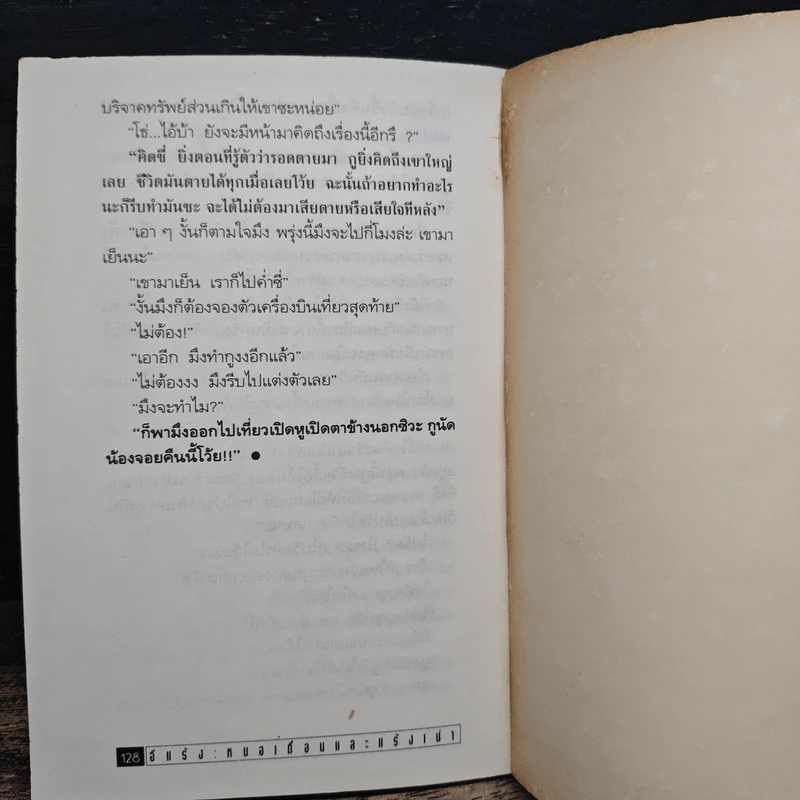 บริจาคทรัพย์ส่วนเกินให้เขาซะหน่อย”
“โธ่...ไอ้บ้า ยังจะมีหน้ามาคิดถึงเรื่องนี้อีกรึ ?”
“คิดซี่ ยิ่งตอนที่รู้ตัวว่ารอดตายมา กูยิ่งคิดถึงเขาใหญ่
เลย ชีวิตมันตายได้ทุกเมื่อเลยโว้ย ฉะนั้นถ้าอยากทำอะไร
นะก็รีบทำมันซะ จะได้ไม่ต้องมาเสียดายหรือเสียใจทีหลัง”
“เอา ๆ งั้นก็ตามใจมึง พรุ่งนี้มึงจะไปกี่โมงล่ะ เขามา
เย็นนะ”
“เขามาเย็น เราก็ไปค่ำซี่”
“งั้นมึงก็ต้องจองตัวเครื่องบินเที่ยวสุดท้าย”
“ไม่ต้อง!”
“เอาอีก มึงทำกูงงอีกแล้ว”
“ไม่ต้องงง มึงรีบไปแต่งตัวเลย”
“มึงจะทำไม?”
“ก็พามึงออกไปเที่ยวเปิดหูเปิดตาข้างนอกซิวะ กูนัด
น้องจอยคืนนี้โว้ย!!” ●
128 อีแร้ง:หมอเถื่อนและแร้งเน่า